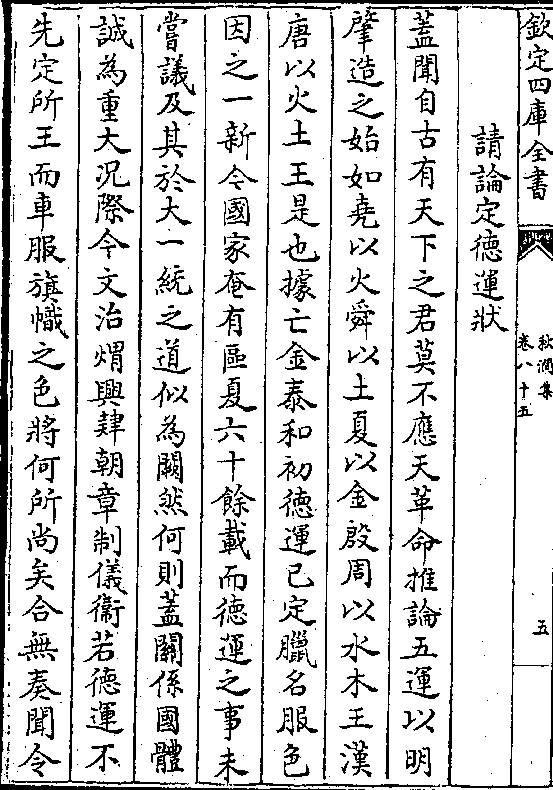 欽定四庫全書
秋澗集
卷八十五
五
請論定德運狀
蓋聞自古有天下之君莫不應天革命推論五運以明
肇造之始如堯以火舜以土夏以金殷周以水木王漢
唐以火土王是也據亡金泰和初德運已定臘名服色
因之一新今國家奄有區夏六十餘載而德運之事未
嘗議及其於大一統之道似為闕然何則蓋關係國體
誠為重大況際今文治煟興肄朝章制儀衞若德運不
先定所王而車服旗幟之色將何所尚矣合無奏聞令